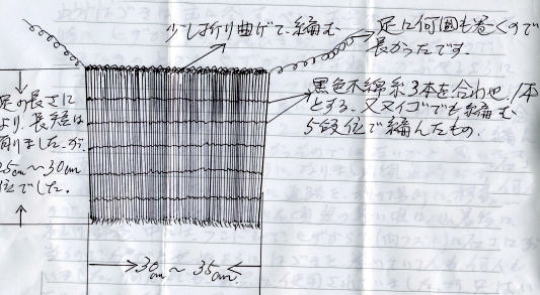 少し折り曲げて編む
足に何回も巻くので
長かったです。
黒色木綿糸3本を合わせ1本
とする。又スイゴでも編む
5段位で編んだもの。
足の長さに
より、長短は
有りましたが、
25cm〜30cm
位でした。
30cm〜35cm